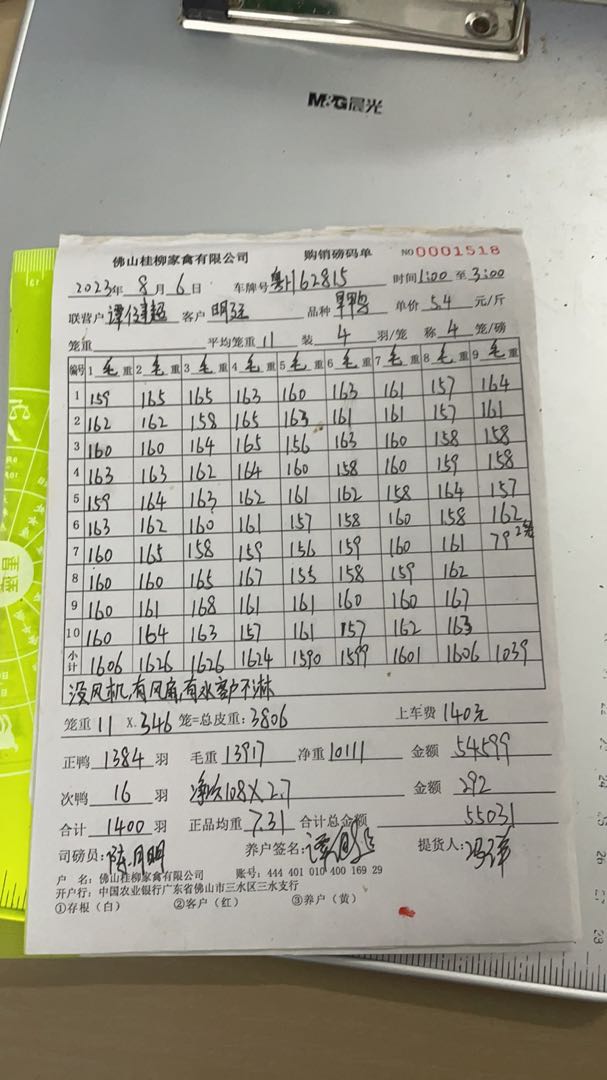 M&G晨光
佛山桂柳家禽有限公司 购销磅码单 NO 0001518
2023年 8月 6日 车牌号 粤H62815 时间 1:00 至 3:00
联营户 客户 明强 品种 单价 5.4 元/斤
笼重 平均笼重 11 装 4 羽/笼 称 4 笼/磅
编号 1 毛重 2 毛重 3 毛重 4 毛重 5 毛重 6 毛重 7 毛重 8 毛重 9 毛重
1 159 165 165 163 160 163 161 157 164
2 162 162 158 165 163 161 161 157 161
3 160 160 164 165 156 163 160 158 158
4 163 163 162 164 160 158 160 159 158
5 159 164 163 162 161 162 158 164 157
6 163 162 160 161 157 158 160 158 162
7 160 165 158 159 156 159 160 161 79 2笼
8 160 160 165 167 155 158 159 162
9 160 161 168 161 161 160 160 167
10 160 164 163 157 161 157 162 163
小计 1606 1626 1626 1624 1590 1599 1601 1606 1039
没风机,有风扇,有水客户不淋
笼重 11 X 346 笼=总皮重: 3806 上车费 140元
正鸭 1384 羽 毛重 13917 净重 10111 金额 54599
次鸭 16 羽 108X2.7 金额 292
合计 1400 羽 正品均重 7.31 合计总金额 55031
司磅员: 养户签名: 提货人:
户 名: 佛山桂柳家禽有限公司 账号: 444 401 010 400 169 29
开户行: 中国农业银行广东省佛山市三水区三水支行
①存根（白） ②客户（红） ③养户（黄）